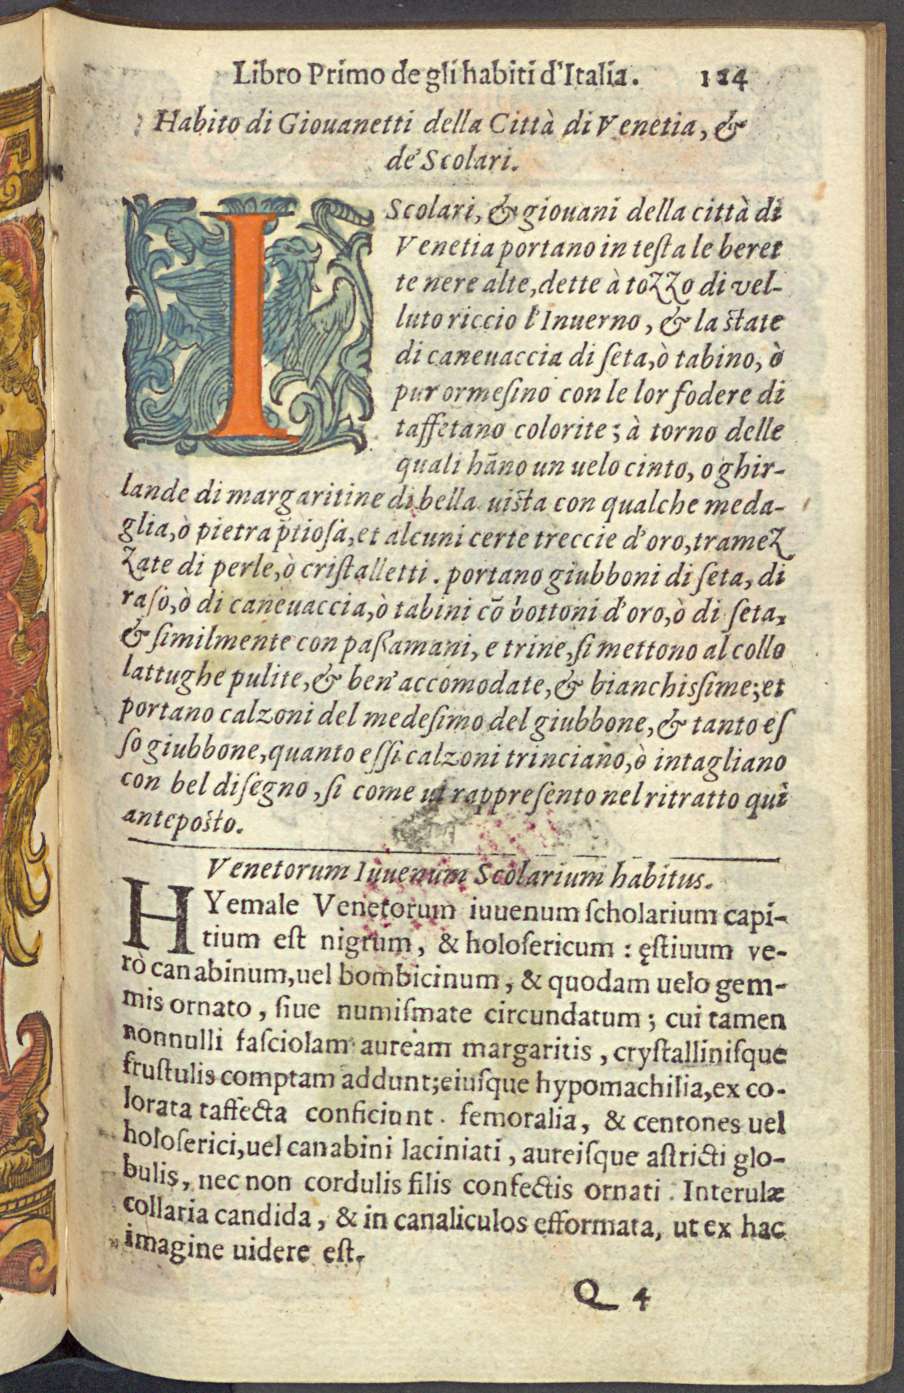 Libro Primo de gli habiti d'Italia. 124
Habito di Giouanetti della Città di Venetia, &
de' Scolari.
I Scolari, & giouani della città di
Venetia portano in teſta le beret
te nere alte, dette à tozzo di vel-
luto riccio l'Inuerno, & la ſtate
di caneuaccia di ſeta, ò tabino, ò
pur ormeſino con le lor fodere di
taffetano colorite; à torno delle
quali hāno un uelo cinto, o ghir-
lande di margaritine di bella uiſta con qualche meda-
glia, ò pietra p̄tioſa, et alcuni certe treccie d'oro, tramez
zate di perle, ò criſtalletti. portano giubboni di ſeta, di
raſo, ò di caneuaccia, ò tabini cō bottoni d'oro, ò di ſeta,
& ſimilmente con paſſamani, e trine, ſi mettono al collo
lattughe pulite, & ben'accomodate, & bianchiſſime; et
portano calzoni del medeſimo del giubbone, & tanto eſ
ſo giubbone, quanto eſſi calzoni trinciano, ò intagliano
con bel diſegno, ſi come ui rappreſento nel ritratto quì
antepoſto.
Venetorum Iuuenum Scolarium habitus.
HYemale Venetorum iuuenum ſcholarium capi-
tium eſt nigrum, & holoſericum : ęſtiuum ve-
rò canabinum, uel bombicinum, & quodam uelo gem-
mis ornato, ſiue numiſmate circundatum; cui tamen
nonnulli faſciolam auream margaritis, cryſtalliniſque
fruſtulis comptam addunt; eiuſque hypomachilia, ex co-
lorata taffecta conficiunt. femoralia, & centones uel
holoſerici, uel canabini laciniati, aureiſque aſtricti glo-
bulis, nec non cordulis filis confectis ornati. Interulæ
collaria candida, & in canaliculos efformata, ut ex hac
imagine uidere eſt.
Q 4